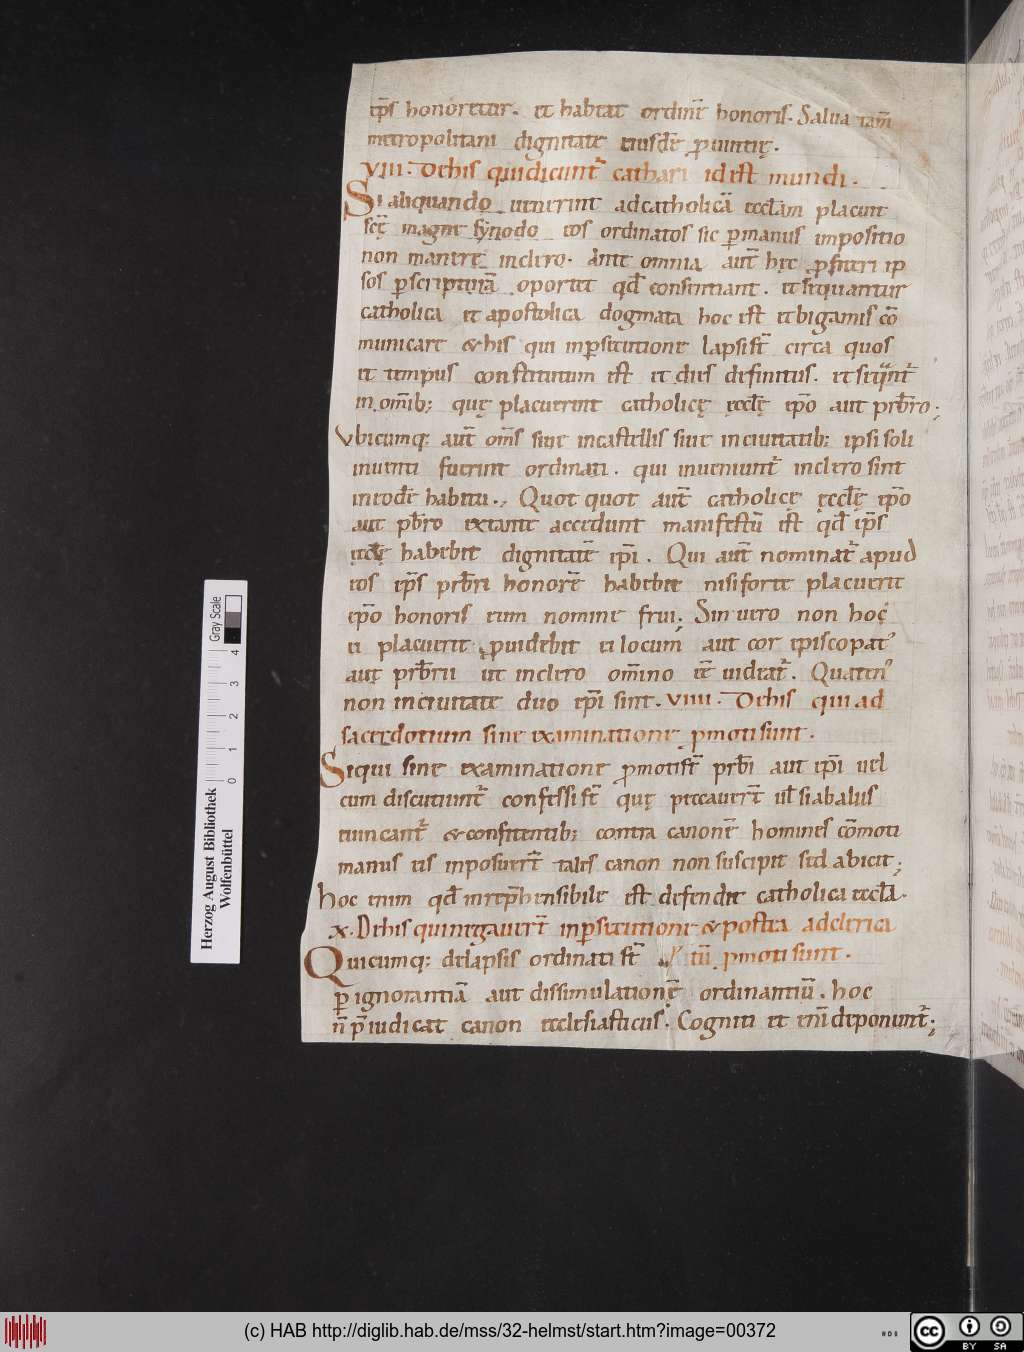 ep̄s honoretur. et habeat ordinē honoris. Salua tam̄
metropolitani dignitate eiusdē ꝓuintię.
VIII. De his qui dicunt̄ cathari id est mundi.
Si aliquando uenerint ad catholicā eccl̄am placuit
scę̄ magnę synodo eos ordinatos sic ꝑ manus impositio
nem manere in clero. Ante omnia aut̄ hęc ꝓfiteri ip
sos ꝑ scripturā oportet qd̄ consentiant. et sequantur
catholica et apostolica dogmata hoc est et bigamis cō
municare & his qui in ꝑsecutione lapsi st̄ circa quos
et tempus constitutum est et dies definitus. et sequant̄
in om̄ib; quę placuerint catholicę ęccl̄ę ep̄o aut prb̄ro;
Vbicumq; aut̄ om̄s siue in castellis siue in ciuitatib; ipsi soli
inuenti fuerint ordinati. qui inueniunt̄ in clero sint
in eodē habitu., Quot quot aut̄ catholicę ęccl̄ę ep̄o
aut pb̄ro extante accedunt manifestū est qd̄ ep̄s
eccl̄ę habebit dignitatē ep̄i. Qui aut̄ nominat̄ apud
eos ep̄s prb̄ri honorē habebit nisi forte placuerit
ep̄o honoris eum nomine frui; Sin uero non hoc
ei placuerit ꝓuidebit ei locum aut cor episcopat’
aut prb̄rii ut in clero om̄ino eē uideat̄. Quaten’
non in ciuitate duo ep̄i sint. VIIII. De his qui ad
sacerdotium sine examinatione ꝓmoti sunt.
Siqui sine examinatione ꝓmoti st̄ prb̄i aut ep̄i uel
cum discutiunt̄ confessi st̄ quę peccauert̄ ul̄ si ab aliis
euincant̄ & confitentib; contra canonē homines cōmoti
manus eis inposuert̄ tales canon non suscipit sed abicit;
hoc enim qd̄ inreprēhensibile est defendit catholica eccl̄a.
X. De his qui negauert̄ in ꝑsecutione & postea ad clerica
Quicumq; de lapsis ordinati st̄ tū ꝓmoti sunt.
ꝑ ignorantiā aut dissimulationę̄ ordinantiū. hoc
n̄ p̄iudicat canon ecclesiasticus. Cogniti et eni̅ deponunt̄;
Herzog August Bibliothek
Wolfenbüttel
0 1 2 3 4
Gray Scale
(c) HAB http://diglib.hab.de/mss/32-helmst/start.htm?image=00372
cc BY SA